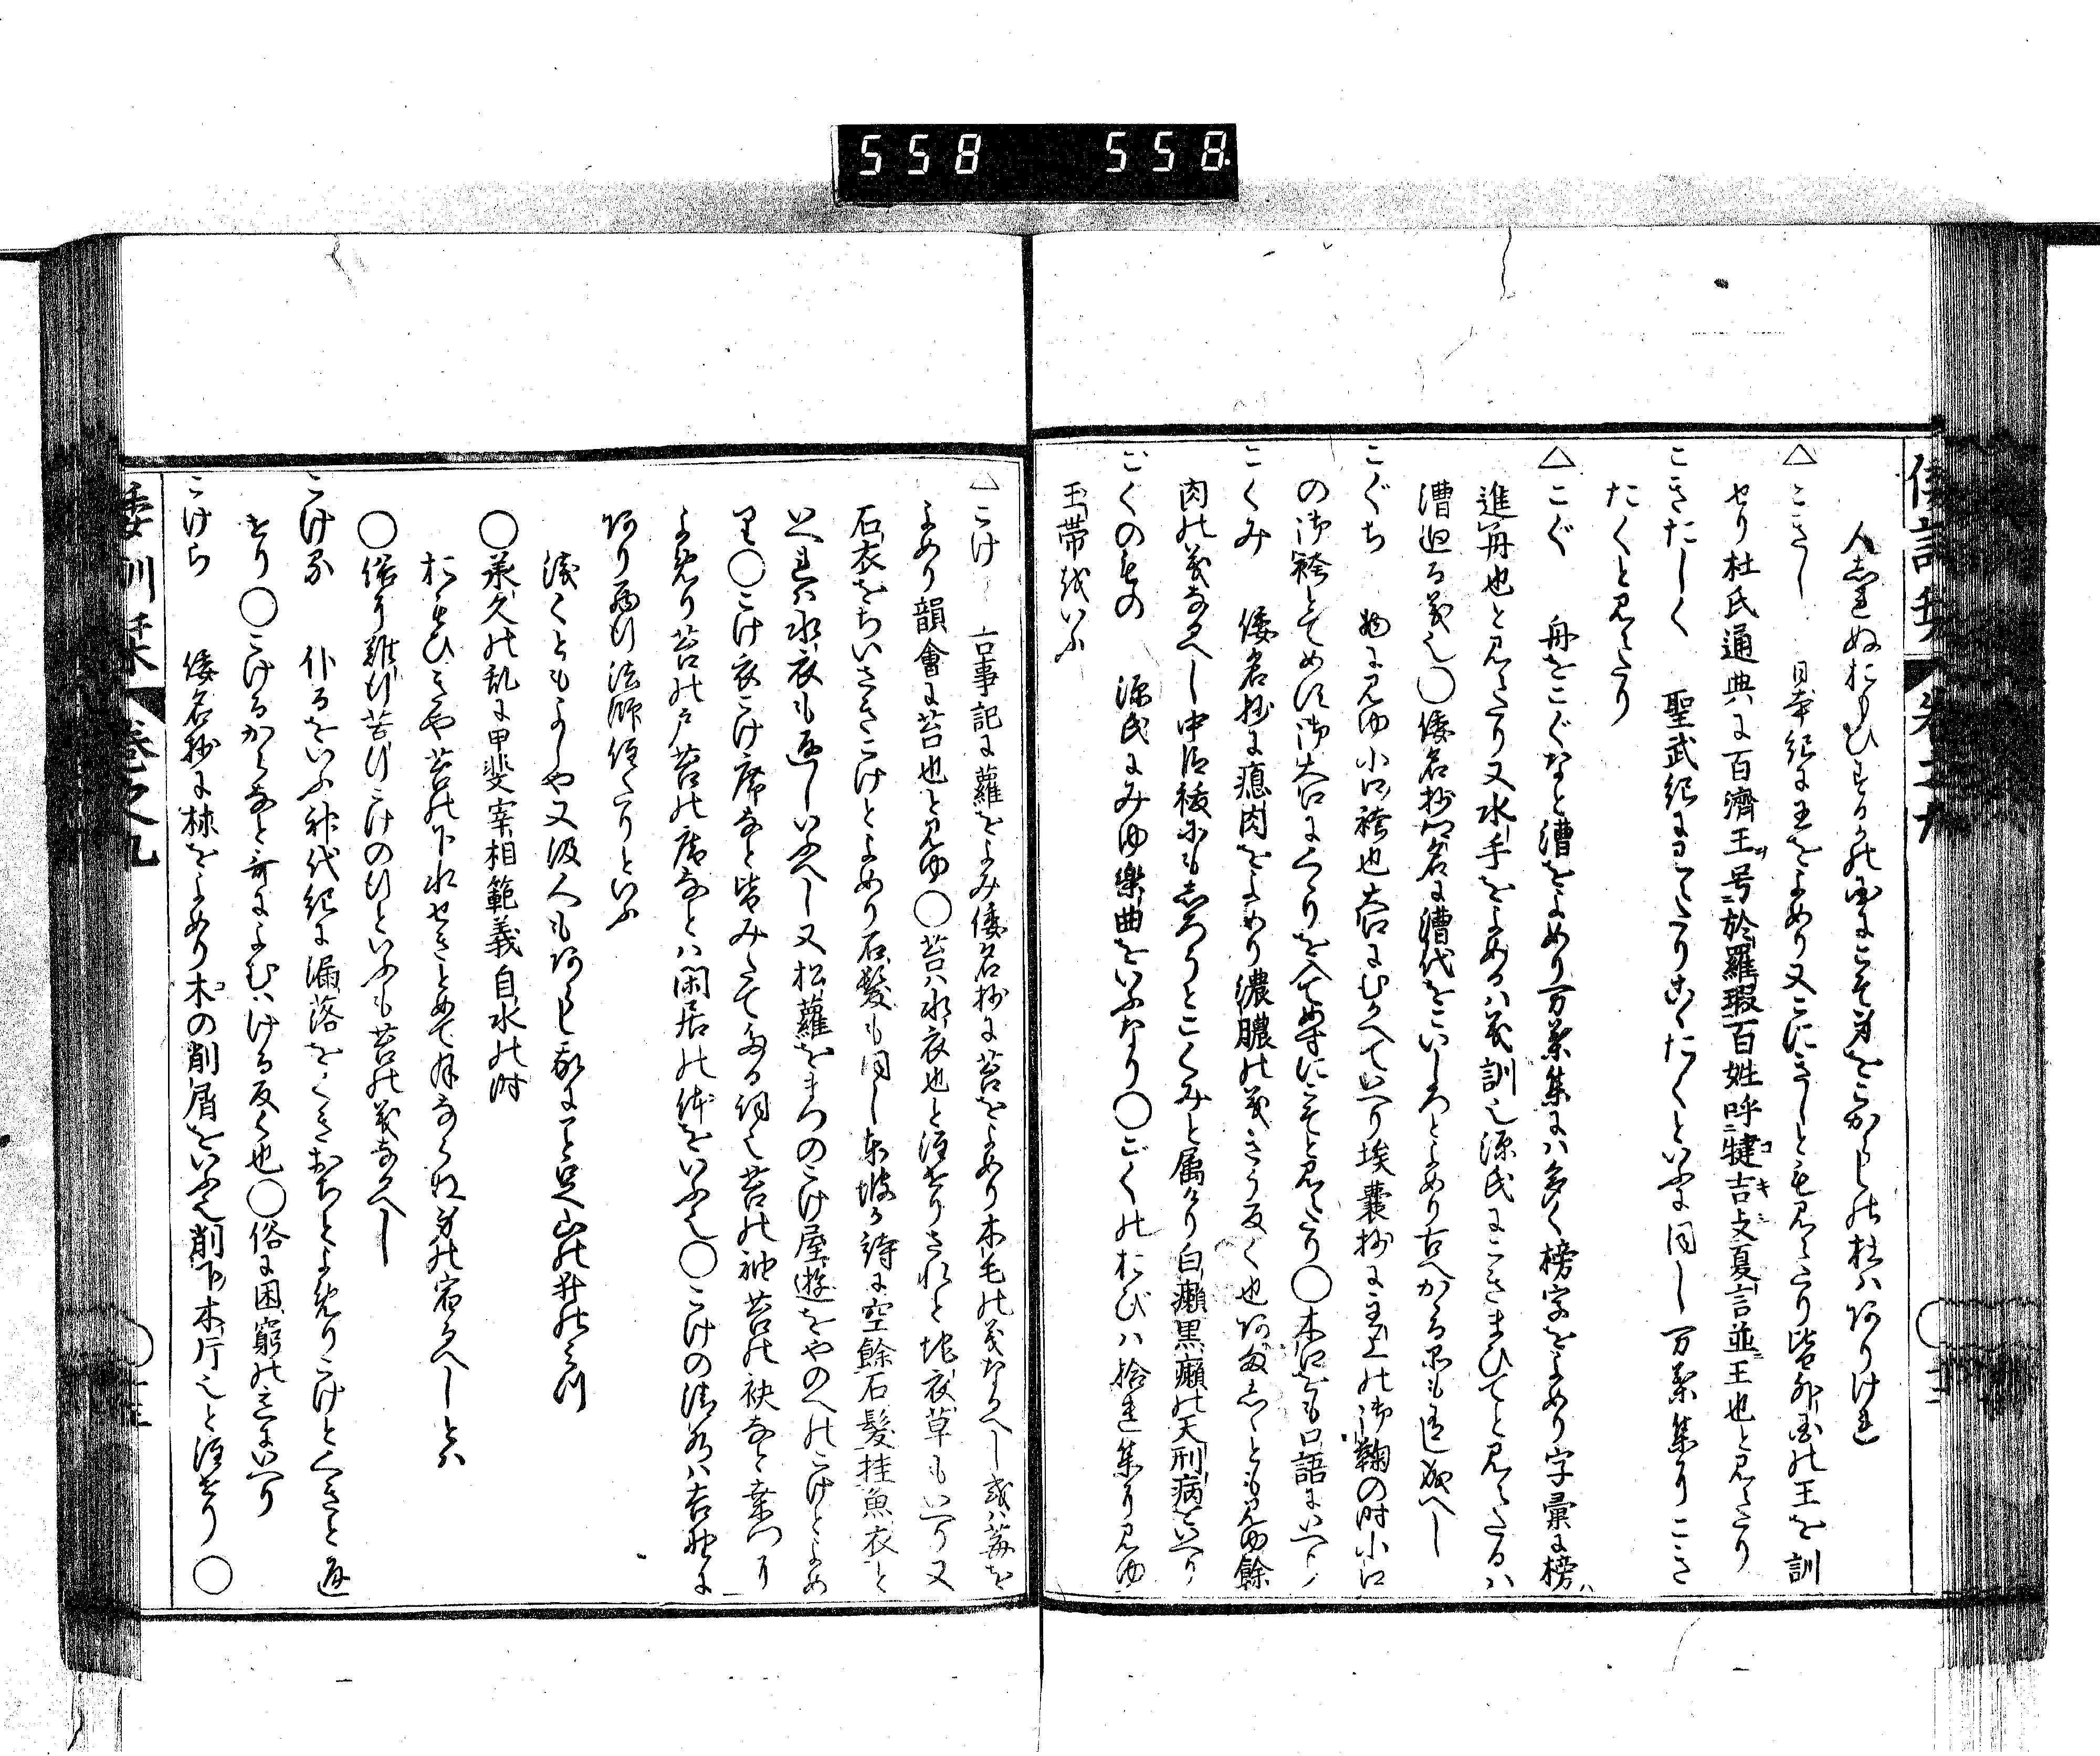 558 558
人しれぬおもひするかの国にこそ身をこがらしの杜はありけれ
△こきし 日本紀に王をよめり又こにきしとも見えたり皆外国の王を訓
せり杜氏通典に百済王号於羅瑕百姓呼鞬吉支夏言並王也と見えたり
こきたしく 聖武紀に見えたりこゝたくといふに同し万葉集にこき
たくと見えたり
△こぐ 舟をこぐなと漕をよめり万葉集には多く榜字をよめり字彙に榜ハ
進舟也と見えたり又水手をよめるハ義訓也源氏にこきまひてと見えたるハ
漕廻る義也○倭名抄郷名に漕代をこいしろとよめり古へかゝる
こぐち 物に見ゆ小口袴也大口にむかへていへり埃嚢抄に主上の御鞠の時小口
の御袴とてめす御大口にくゝりを入てめすにこそと見えたり○木口をも口語にいへり
こくみ 倭名抄に瘜肉をよめり濃膿の義きう反く也あましゝとも見ゆ餘
肉の義なるへし中臣祓にもしろうとこくみと属けり白癩黒癩の天刑病といへり
ごくのもの 源氏にみゆ楽曲をいふなり○ごくのおびハ拾遺集に見ゆ
玉帯をいふ
△こけ 古事記に蘿をよみ倭名抄に苔をよめり木毛の義なるへし或ハ苺を
よめり韻會に苔也と見ゆ○苔ハ水衣也と注せりされと地衣草もいへり又
石衣をちいさきこけとよめり石髪も同し東坡か詩に空餘石髪挂魚衣と
いへれハ水衣も通しいふへし又松蘿をまつのこけ屋遊をやのへのこけとよめ
り○こけ衣こけ席なと皆みたてたる詞也苔の袖苔の袂なと
よめり苔の戸苔の庵なとハ閑居の体をいふ也○こけの清水ハ吉野に
あり西行法師住たりといふ
浅くともよしや又汲人もあらし我にこと足る山の井の水
○承久の乱に甲斐宰相範義自水の時
おもひきや苔の下水せきとめて月ならぬ身の宿るへしとハ
○俗に難行苦行こけの行といふも苔の義なるへし
こける 仆るをいふ神代紀に漏落をくきおちとよめりこけとくきと通
せり○こけるからなと歌によむハける反く也○俗に困窮の意にいへり
こけら 倭名抄に柿をよめり木の削屑をいふ也削下木片也と注せり○
倭訓栞 巻之九